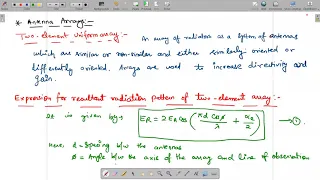 * Antenna Arrays:-
Two-element Uniform array:- An array of radiators as a system of antennas
which are similar or non-similar and either similarly oriented or
differently oriented. Arrays are used to increase directivity and
gain.
Expression for resultant radiation pattern of two-element array:-
It is given by, E_R = 2 E_0 cos (πd cosϕ/λ + α/2) → ①
Here d = Spacing b/w the antennas
ϕ = Angle b/w the axis of the array and line of observation